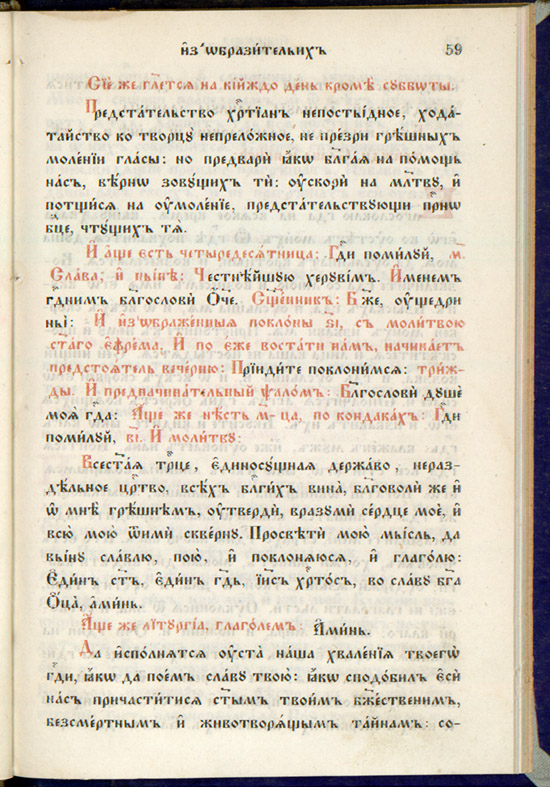 И҆з̾ ѡ҆брази́тельныхъ 59
Сїе́ же гл҃етсѧ на кі́йждо де́нь кромѣ̀ сꙋббѡ́ты.
Предста́тельство хрⷭ҇тїа́нъ непосты́дное, хода́-
тайство ко творцꙋ̀ непрело́жное, не пре́зри грѣ́шныхъ
моле́нїй гла́сы: но предварѝ ꙗ҆́кѡ бл҃га́ѧ на по́мощь
на́съ, вѣ́рнѡ зовꙋ́щихъ тѝ: оу҆скорѝ на мл҃твꙋ, и҆
потщи́сѧ на оу҆моле́нїе, предста́тельствꙋющи при́снѡ
бц҃е, чтꙋ́щихъ тѧ̀.
И҆ а҆́ще є҆́сть четыредесѧ́тница: Гдⷭ҇и поми́лꙋй, м҃.
Сла́ва: и҆ ны́нѣ: Честнѣ́йшꙋю херꙋві̑мъ. И҆́менемъ
гдⷭ҇нимъ благословѝ О҆́ч҃е. Сщ҃е́нникъ: Бж҃е, оу҆ще́дри
ны̀: И҆ и҆з̾ѡбраже́нныѧ покло́ны ѕ҃і, съ моли́твою
ст҃а́го є҆фре́ма. И҆ по є҆́же воста́ти на́мъ, начина́етъ
предстоѧ́тель вече́рню: Прїиди́те поклони́мсѧ: три́ж-
ды. И҆ предначина́тельный ѱало́мъ: Благословѝ дꙋшѐ
моѧ̀ гдⷭ҇а: А҆́ще же нѣ́сть м҃-ца, по кондака́хъ: Гдⷭ҇и
поми́лꙋй, в҃і. И҆ моли́твꙋ:
Всест҃а́ѧ трⷪ҇це, є҆диносꙋ́щнаѧ держа́во, нераз-
дѣ́льное црⷭ҇тво, всѣ́хъ бл҃ги́хъ вина̀, бл҃говолѝ же и҆
ѡ҆ мнѣ̀ грѣ́шнѣмъ, оу҆твердѝ, вразꙋмѝ се́рдце моѐ, и҆
всю̀ мою̀ ѿимѝ скве́рнꙋ. Просвѣтѝ мою̀ мы́сль, да
вы́нꙋ сла́влю, пою̀, и҆ покланѧ́юсѧ, и҆ глаго́лю:
Є҆ди́нъ ст҃ъ, є҆ди́нъ гдⷭ҇ь, і҆и҃съ хрⷭ҇то́съ, во сла́вꙋ бг҃а
Ѻ҆ц҃а̀, а҆ми́нь.
А҆́ще же лїтꙋргі́а, глаго́лемъ: А҆ми́нь.
Да и҆спо́лнѧтсѧ оу҆ста̀ на́ша хвале́нїѧ твоегѡ̀
гдⷭ҇и, ꙗ҆́кѡ да пое́мъ сла́вꙋ твою̀: ꙗ҆́кѡ сподо́билъ є҆сѝ
на́съ причасти́тисѧ ст҃ы́мъ твои̑мъ бж҃е́ственнымъ,
безсме́ртнымъ и҆ животворѧ́щымъ та́йнамъ: со-